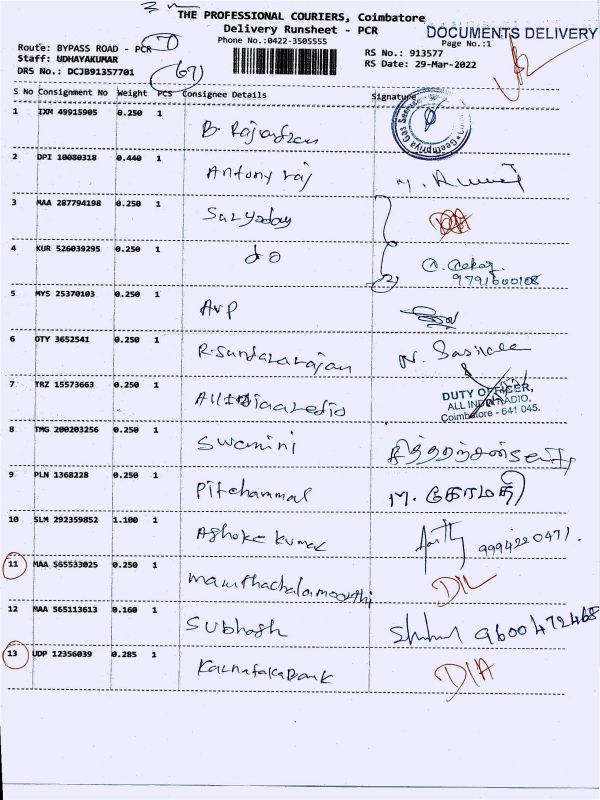 THE PROFESSIONAL COURIERS, Coimbatore
Delivery Runsheet - PCR
Phone No.:0422-3505555
DOCUMENTS DELIVERY
Page No.:1
Route: BYPASS ROAD - PCR 7
Staff: UDHAYAKUMAR
DRS No.: DCJB91357701
(67)
RS No.: 913577
RS Date: 29-Mar-2022
S No Consignment No Weight PCS Consignee Details Signature
1 IXM 49915905 0.250 1 B. Rajendran
2 DPI 10080318 0.440 1 Antony raj
3 MAA 287794198 0.250 1 Suryaday
4 KUR 526039295 0.250 1 do
9791600108
5 MYS 25370103 0.250 1 AVP
6 OTY 3652541 0.250 1 R.Sundararajan N. Sasikala
7 TRZ 15573663 0.250 1 All India Radio
DUTY OFFICER,
ALL INDIA RADIO,
Coimbatore - 641 045.
8 TMG 200203256 0.250 1 Swamini
9 PLN 1368228 0.250 1 Pitchammal M. கோமதி
10 SLM 292359852 1.100 1 Ashoke Kumar 9994220471.
11 MAA 565533025 0.250 1 Maruthachalamoorthi D/L
12 MAA 565113613 0.160 1 Subhash 9600472468
13 UDP 12356039 0.285 1 Karnataka Bank D/A